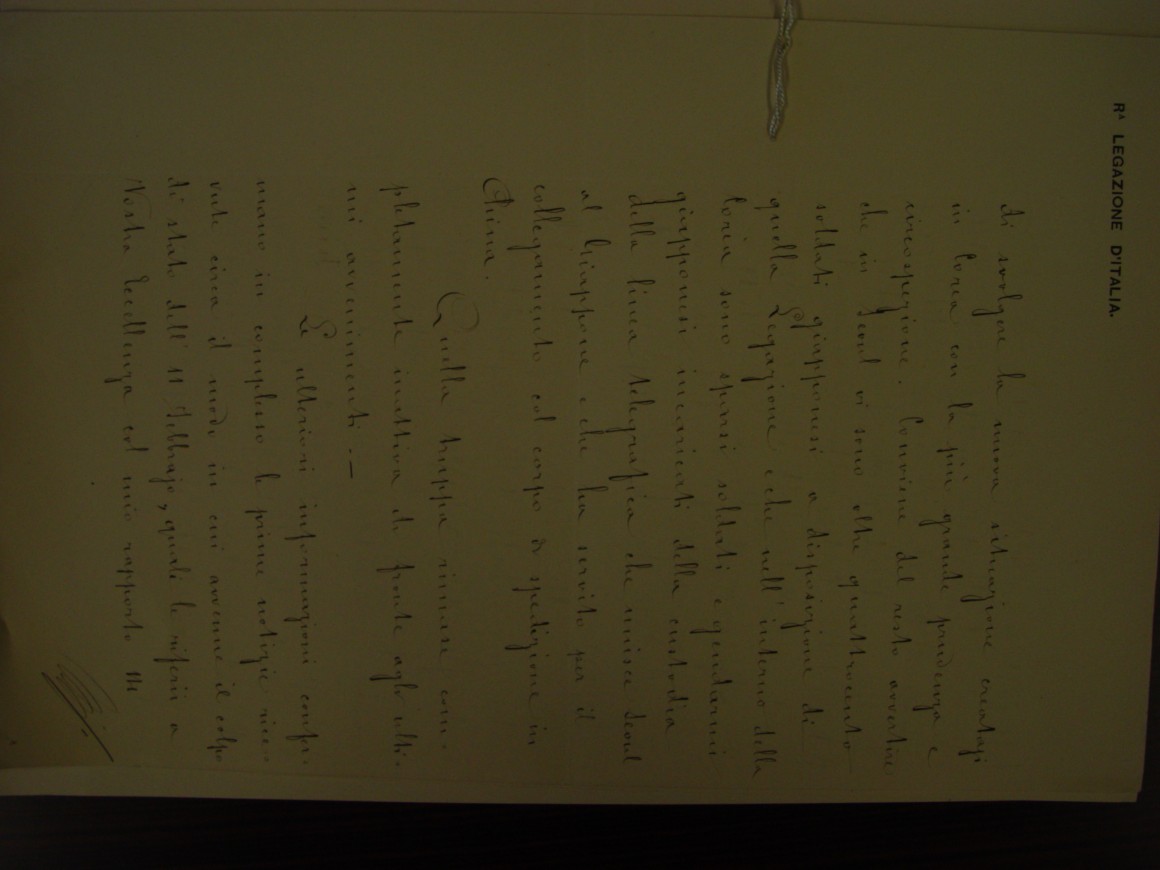 Rᴬ LEGAZIONE D'ITALIA.
di svolgere la nuova situazione creatasi
in Corea con la più grande prudenza e
circospezione. Conviene del resto avvertire
che in Seoul vi sono oltre quattrocento
soldati giapponesi a disposizione di
quella Legazione e che nell'interno della
Corea sono sparsi soldati e gendarmi
giapponesi incaricati della custodia
della linea telegrafica che unisce Seoul
al Giappone e che ha servito per il
collegamento col corpo di spedizione in
China.
Quella truppa rimase com-
pletamente inattiva di fronte agli ulti-
mi avvenimenti. —
Le ulteriori informazioni confer-
mano in complesso le prime notizie rice-
vute circa il modo in cui avvenne il colpo
di stato dell' 11 Febbrajo, quali le riferii a
Vostra Eccellenza col mio rapporto